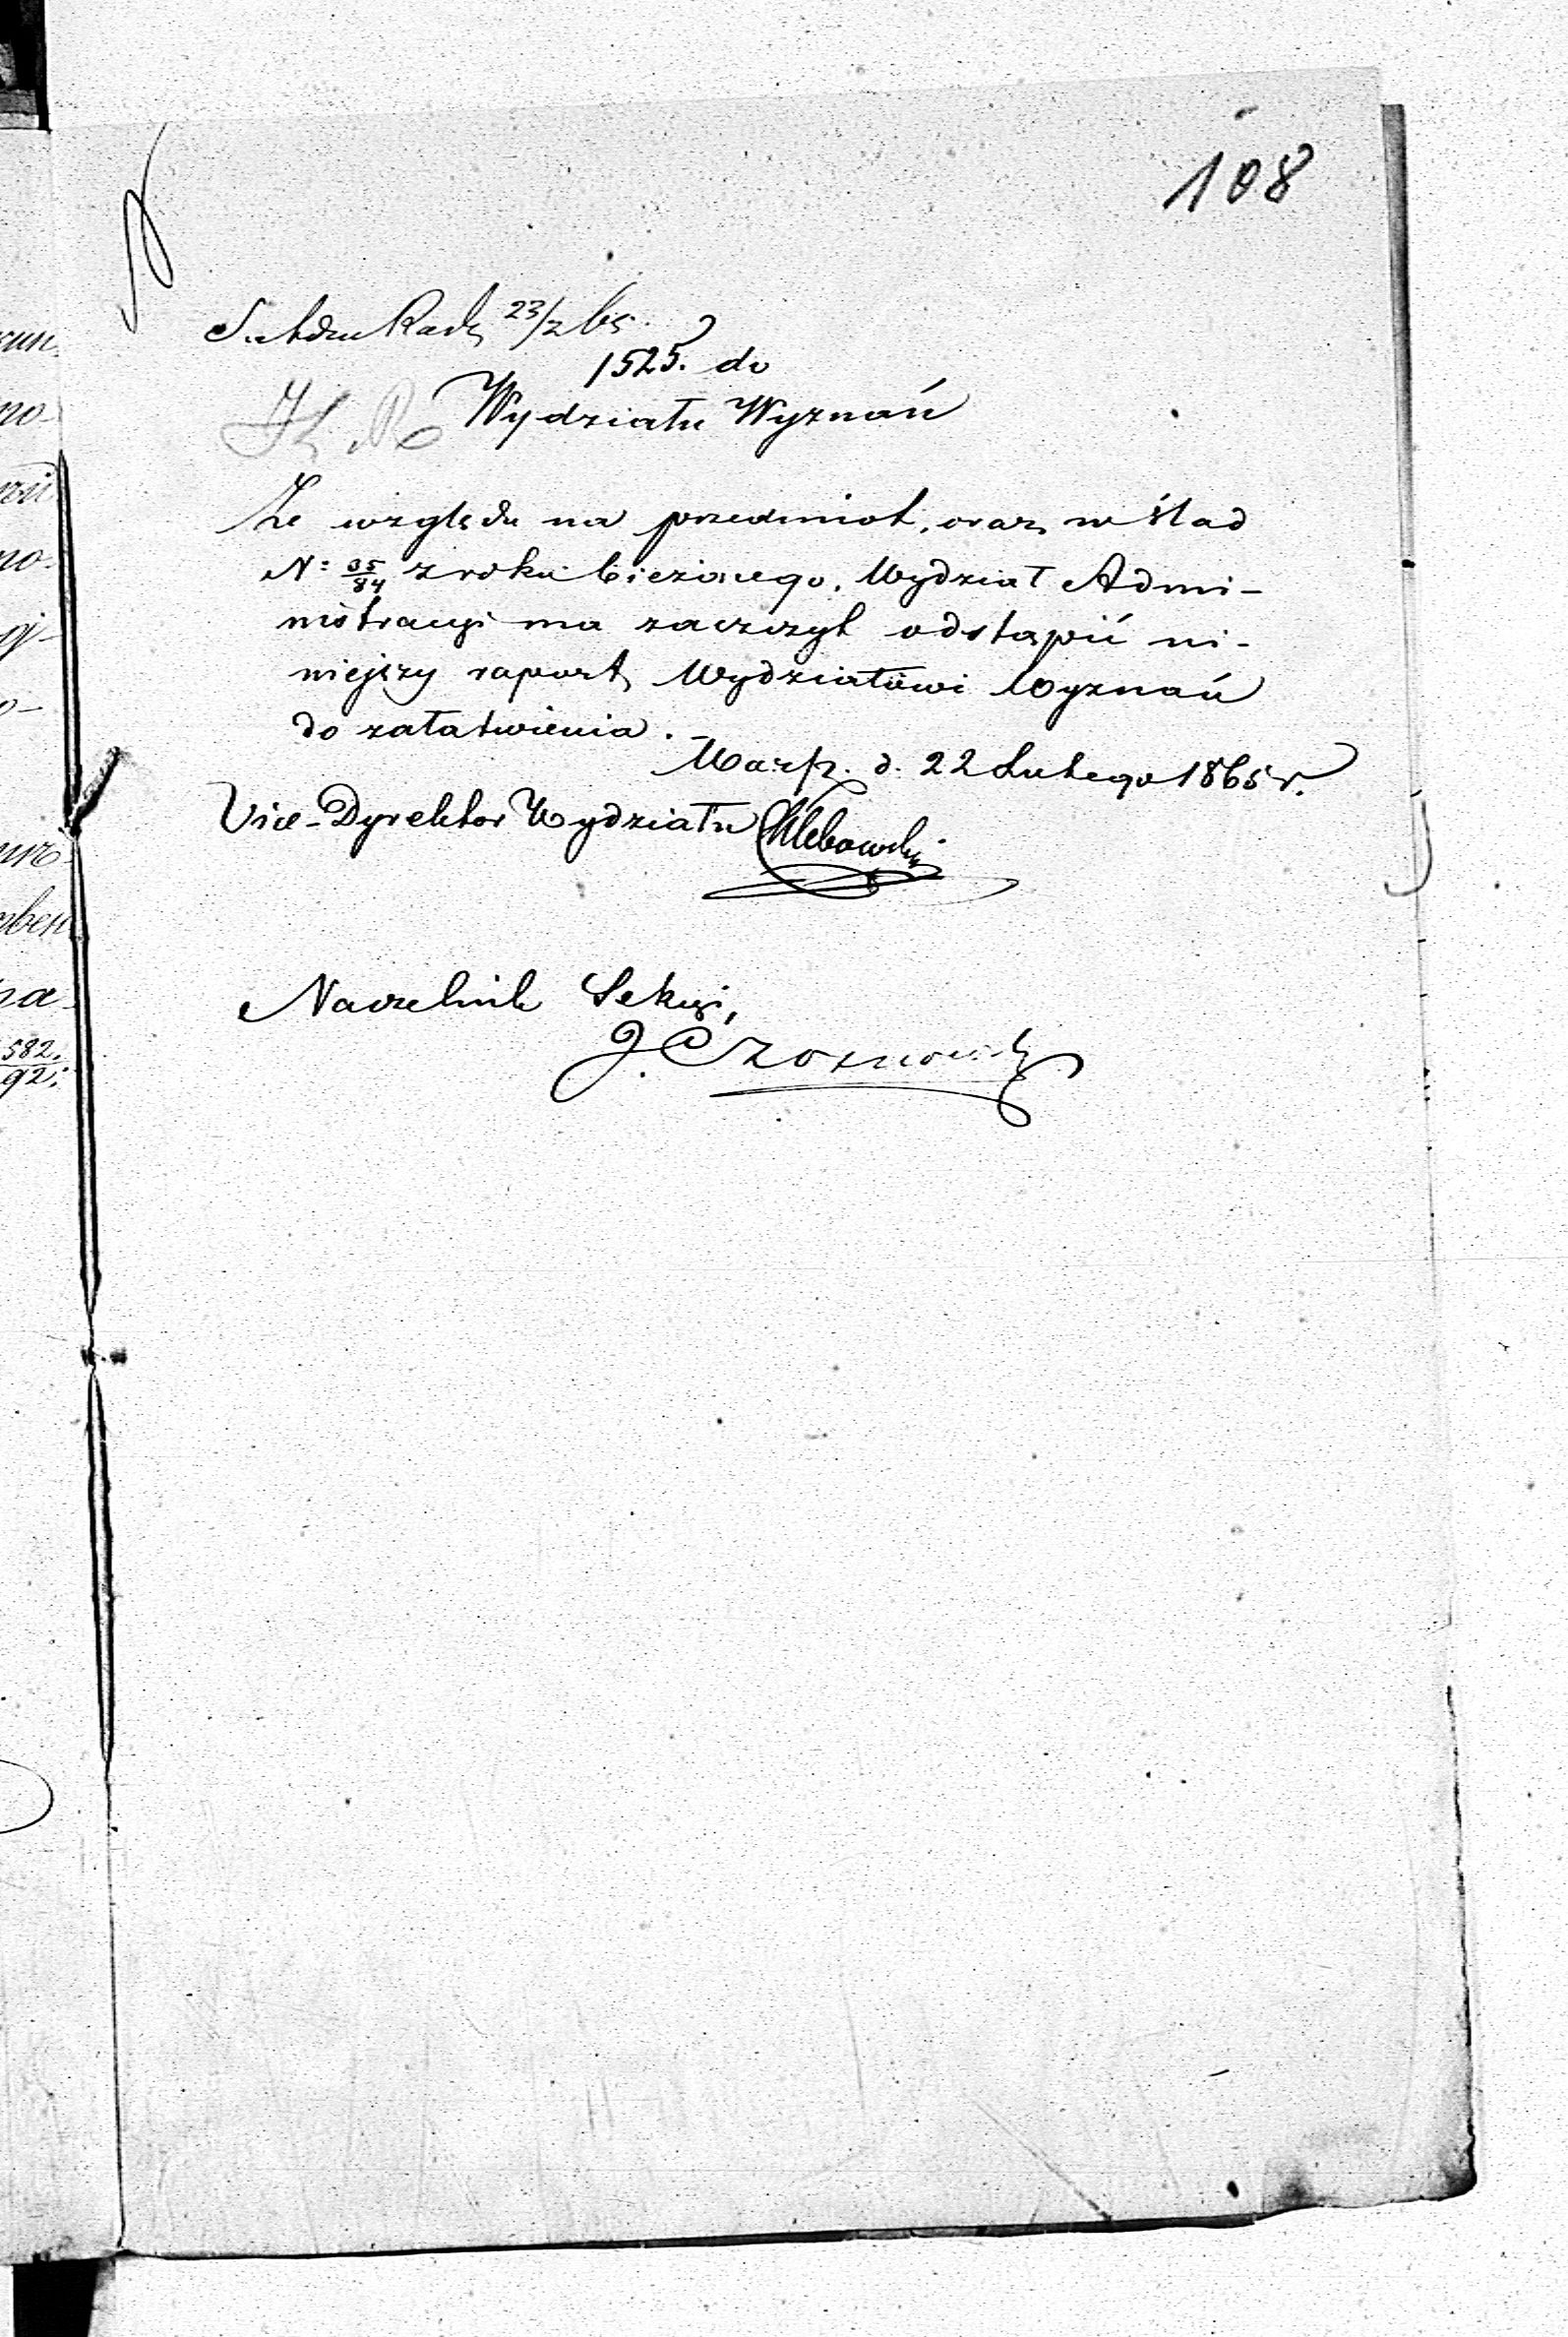 108
23/2 65.
1525. do
Wydziału Wyznań
Ze względu na przedmiot, oraz w ślad
N: 35/84 z roku bieżącego, Wydział Admi-
nistracyi ma zaszczyt odstąpić ni-
niejszy raport Wydziałowi Wyznań
do załatwienia.
Warsz. d. 22 Lutego 1865 r.
Vice-Dyrektor Wydziału Chlebowski
Naczelnik Sekcyi,
J.
582.
92.